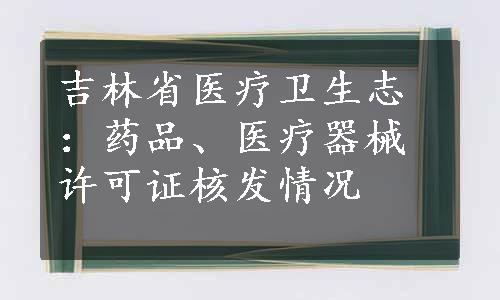 吉林省医疗卫生志
：药品、医疗器械
许可证核发情况